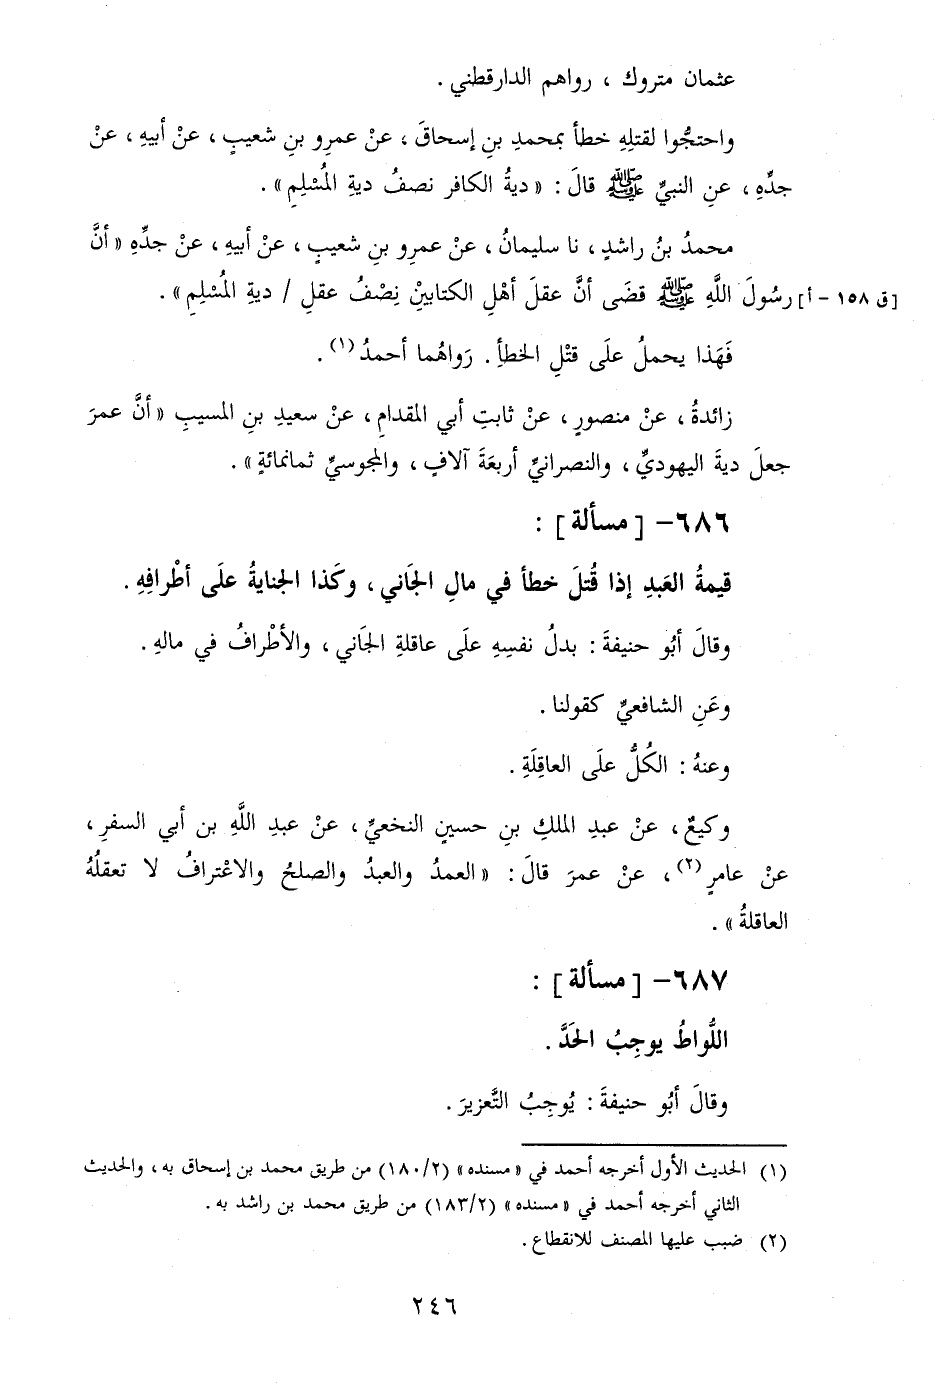 عثمان متروك ، رواهم الدارقطني .
واحتجُّوا لقتلِهِ خطأ بمحمدِ بنِ إسحاقَ ، عنْ عمرِو بنِ شعيبٍ ، عنْ أبيهِ ، عنْ
جدِّهِ ، عنِ النبيِّ ﷺ قالَ : « ديةُ الكافر نصفُ ديةِ المُسْلِمِ » .
محمدُ بنُ راشدٍ ، نا سليمانُ ، عنْ عمرِو بنِ شعيبٍ ، عنْ أبيهِ ، عنْ جدِّهِ « أنَّ
[ق ١٥٨ - أ] رسُولَ اللَّهِ ﷺ قضَى أنَّ عقلَ أهْلِ الكتابينْ نِصْفُ عقلِ / ديةِ المُسْلِمِ » .
فَهَذا يحملُ علَى قتْلِ الخطأِ . رَواهُما أحمدُ (١) .
زائدةُ ، عنْ منصورٍ ، عنْ ثابتِ أبي المقدامِ ، عنْ سعيدِ بنِ المسيبِ « أنَّ عمرَ
جعلَ ديةَ اليهوديِّ ، والنصرانيِّ أربعَةَ آلافٍ ، والمجوسيِّ ثمانمائةٍ » .
٦٨٦- [ مسألة ] :
قيمةُ العَبدِ إذا قُتلَ خطأ في مالِ الجَاني ، وكَذا الجنايةُ علَى أطْرافِهِ .
وقالَ أبُو حنيفةَ : بدلُ نفسِهِ علَى عاقلةِ الجَاني ، والأطْرافُ في مالهِ .
وعَنِ الشافعيِّ كقولنا .
وعنهُ : الكُلُّ علَى العاقِلَةِ .
وكيعٌ ، عنْ عبدِ الملكِ بنِ حسينٍ النخعيِّ ، عنْ عبدِ اللَّهِ بن أبي السفرِ ،
عنْ عامرٍ (٢) ، عنْ عمرَ قالَ : « العمدُ والعبدُ والصلحُ والاعْترافُ لا تعقلُهُ
العاقلةُ » .
٦٨٧- [ مسألة ] :
اللُّواطُ يوجِبُ الحَدَّ .
وقالَ أبُو حنيفةَ : يُوجِبُ التَّعزيرَ .
(١) الحديث الأول أخرجه أحمد في « مسنده » (١٨٠/٢) من طريق محمد بن إسحاق به ، والحديث
الثاني أخرجه أحمد في « مسنده » (١٨٣/٢) من طريق محمد بن راشد به .
(٢) ضبب عليها المصنف للانقطاع .
٢٤٦